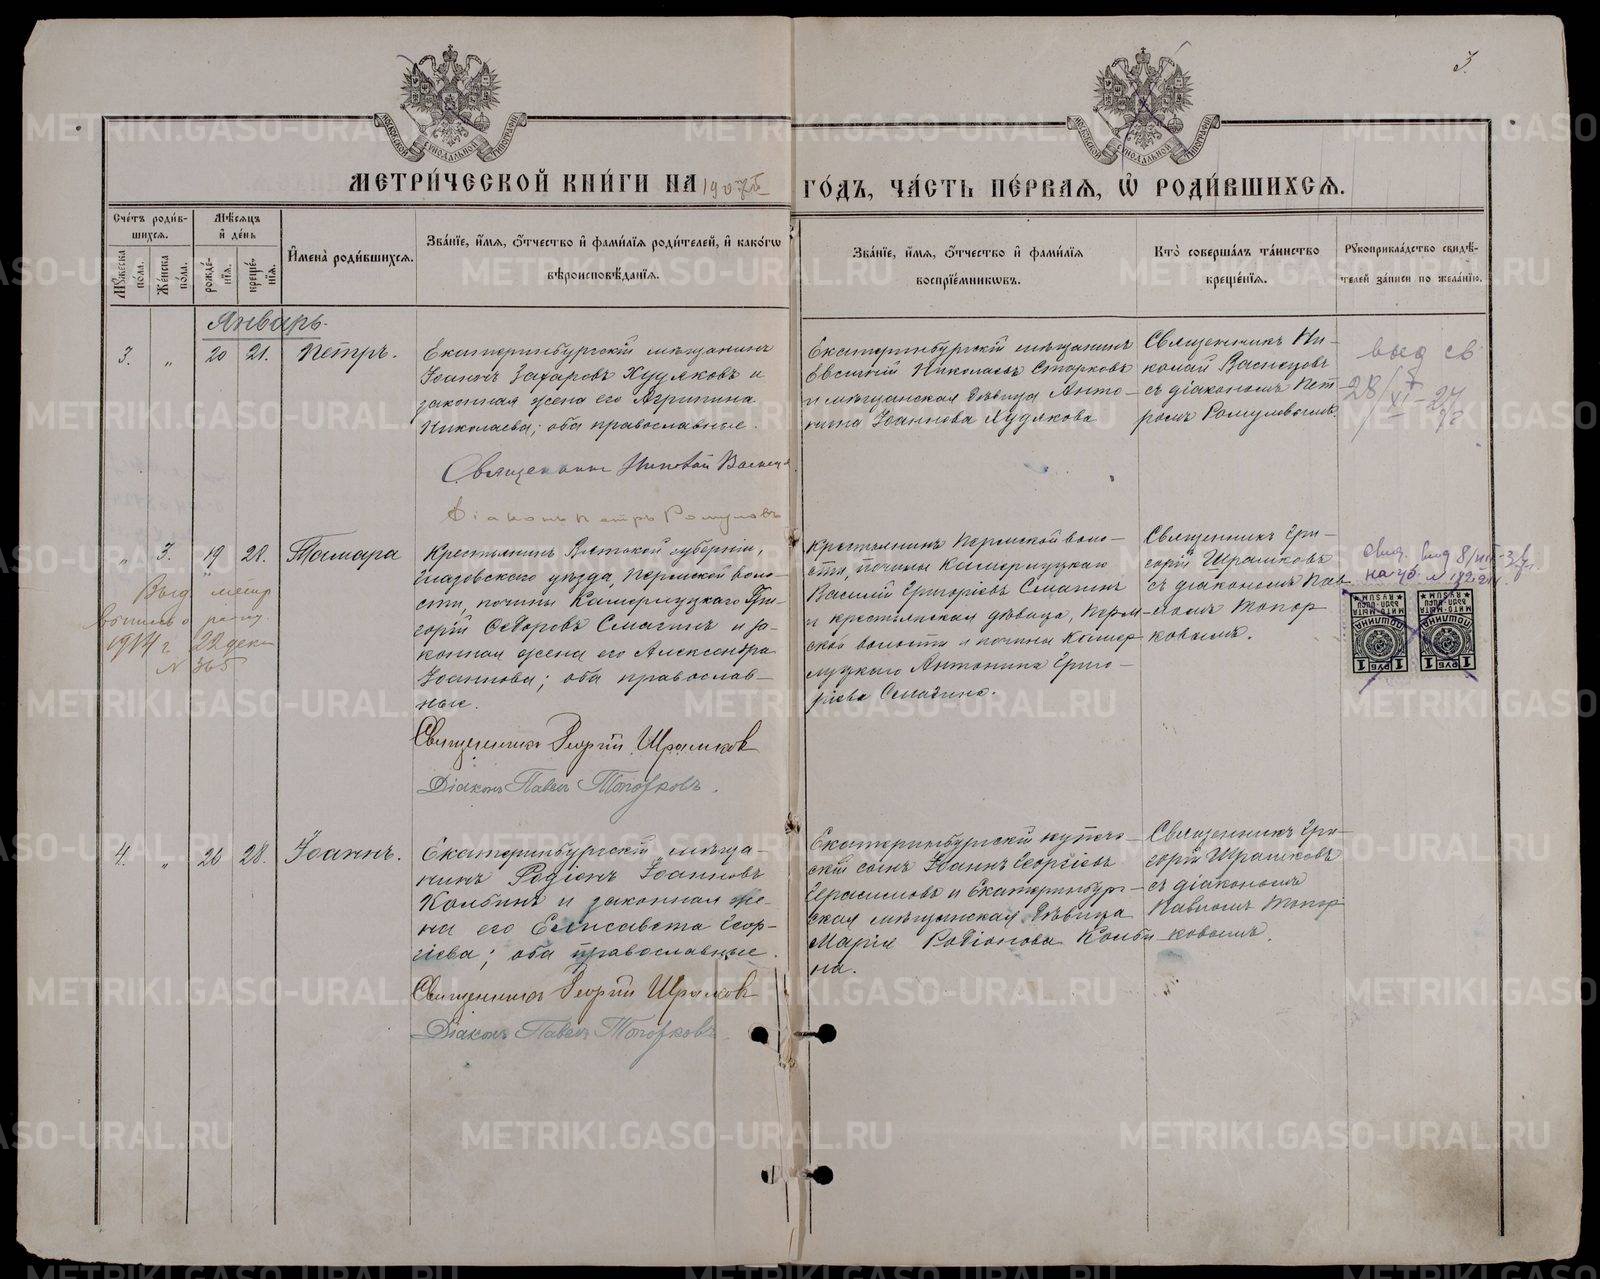 3.
МОСКОВСКОЙ СѴНОДАЛЬНОЙ ТИПОГРАФІИ
МОСКОВСКОЙ СѴНОДАЛЬНОЙ ТИПОГРАФІИ
МЕТРИ́ЧЕСКОЙ КНИ́ГИ НА 1907й ГО́ДЪ, ЧА́СТЬ ПЕ́РВАЯ, Ѽ РОДИ́ВШИХСЯ.
Счётъ роди́в-
шихся.
Мѣ́сяцъ
и҆ де́нь
Мꙋ́жеска по́ла.
Же́нска по́ла.
рожде́-
нїѧ.
креще́-
нїѧ.
И҆мена̀ роди́вшихся.
Зва́нїе, и҆́мя, ѻ҆́тчество и҆ фами́лїя роди́телей, и҆ како́гѡ
вѣроисповѣ́данїя.
Зва́нїе, и҆́мя, ѻ҆́тчество и҆ фами́лїя
воспрїе́мникѡвъ.
Кто̀ соверша́лъ та́инство
креще́нїя.
Рꙋкоприкла́дство свидѣ́-
телей за́писи по жела́нїю.
Январь.
3. " 20 21. Петръ.
Екатеринбургскій мѣщанинъ
Іоаннъ Захаровъ Худяковъ и
законная жена его Агрипина
Николаева; оба православные.
Священникъ Николай Васнецовъ
Діаконъ Петръ Ромуловъ
Екатеринбургскій мѣщанинъ
Евстигній Николаевъ Старковъ
и мѣщанская дѣвица Анто-
нина Іоаннова Худякова
Священникъ Ни-
колай Васнецовъ
съ діакономъ Пет-
ромъ
выд св
28/VI - 27
" 3. 19 28. Тамара
Крестьянинъ Вятской губерніи,
Глазовскаго уѣзда, Пермской воло-
сти, починка Гри-
горій Ѳедоровъ Смагинъ и за-
конная жена его Александра
Іоаннова; оба православ-
ные.
Священникъ Георгій Шрамковъ
Діаконъ Павелъ Топорковъ.
Крестьянинъ Пермской воло-
сти, починка
Василій Григоріевъ Смагинъ
и крестьянская дѣвица, Перм-
ской волости и починка
Антонина Григо-
ріева Смагина.
Священникъ Гри-
горій Шрамковъ
съ діакономъ Пав-
ломъ Топор-
ковымъ.
Выд метр
1914 г 22 дека
N 365
1 РУБ 1
1 РУБ 1
4. " 26 28. Іоаннъ.
Екатеринбургскій мѣща-
нинъ Родіонъ Іоанновъ
Колбинъ и законная же-
на его Елисавета Геор-
гіева; оба православные.
Священникъ Георгій Шрамковъ
Діаконъ Павелъ Топорковъ.
Екатеринбургскій купече-
скій сынъ Іоаннъ Георгіевъ
Герасимовъ и Екатеринбург-
ская мѣщанская дѣвица
Марія Родіонова Колби-
на.
Священникъ Гри-
горій Шрамковъ
съ діакономъ
Павломъ Топор-
ковымъ.
METRIKI.GASO-URAL.RU